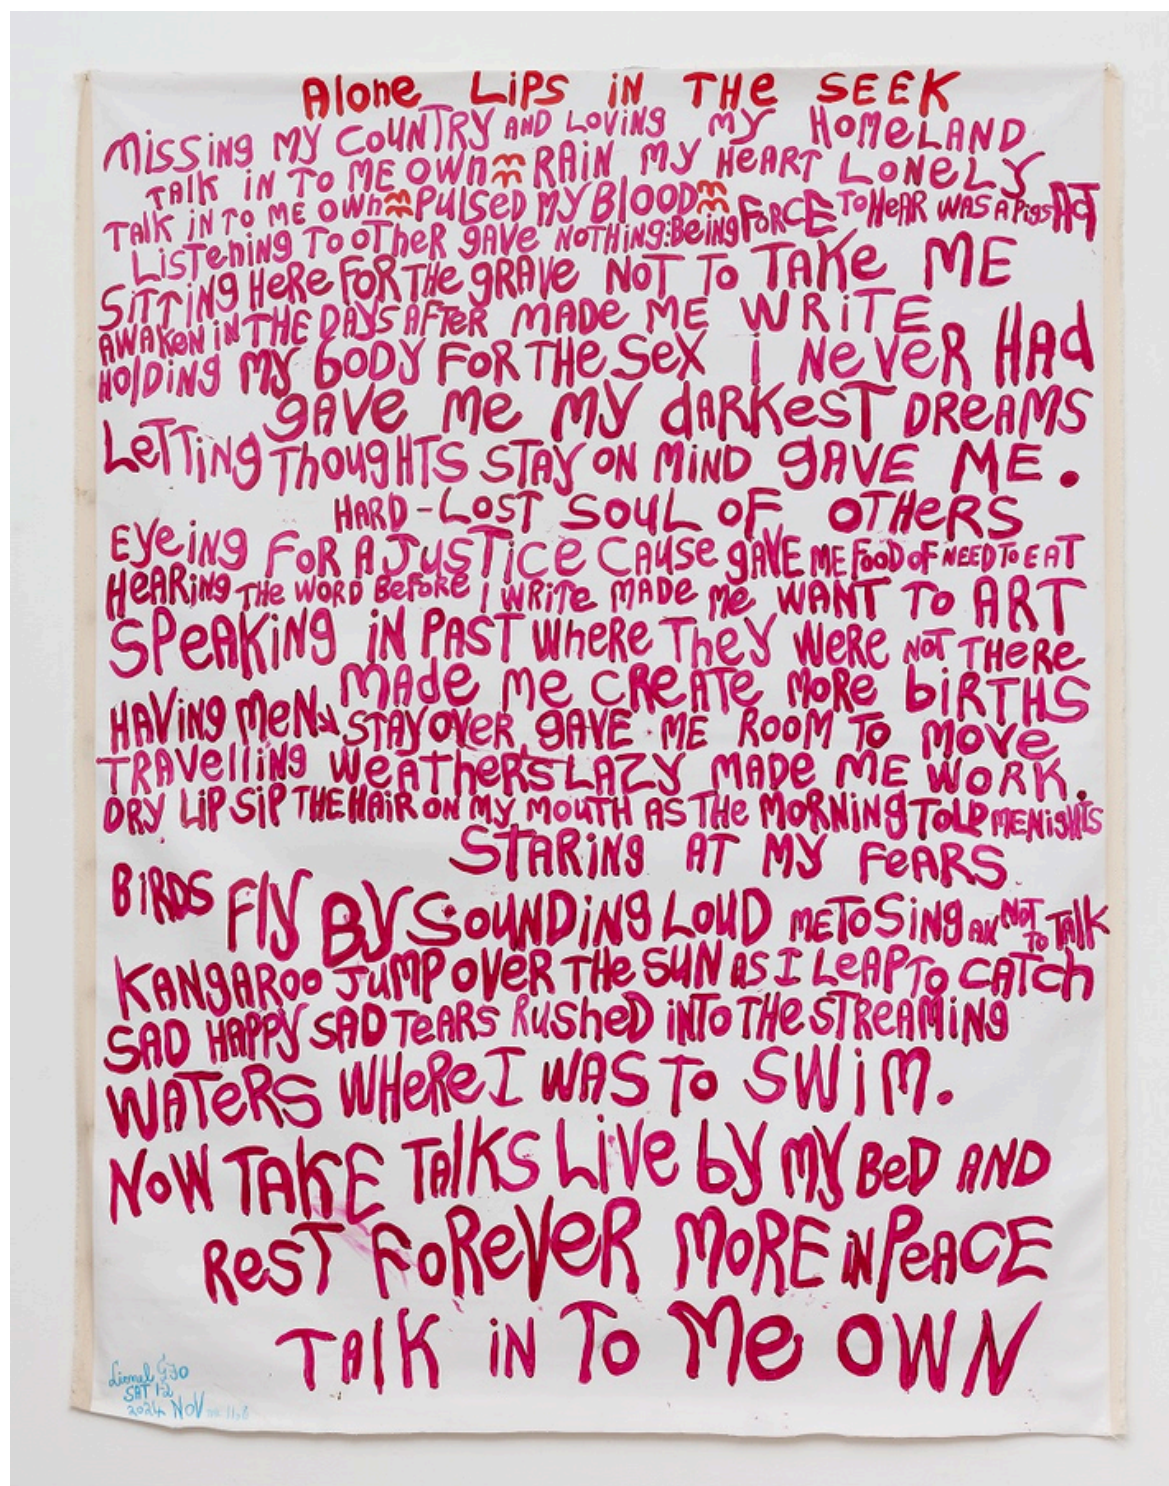 Alone LiPS iN THe SEEK
MiSSiNg MY CouNTRY AND LoViNg MY HoMeLAND
TALK iN To ME OWN RAiN MY HeART LoNeLY
TAlK iN To ME OWN PULSED MY BLOOD
LiSTeNiNg To oTHeR gAVe NoTHiNg:BeiNg FoRCE To HeAR WAS A PigS ACT
SiTTiNg HeRe FoR THe gRAVe NoT To TAKe ME
AWAKeN iN THE DAYS AFTeR MADe ME WRiTE
HOlDiNg MY BODY FoR THe SeX i NeVeR HAd
gAVe Me MY dARKeST DReAMS
LeTTiNg THougHTS STAY ON MiND gAVE ME.
HARD-LoST SouL oF OTHeRS
EYeiNg FoR A JuSTiCe CAuSe gAVE ME Food oF NEED To EAT
HeARiNg THe WoRD BeFoRe I WRiTe MADe Me WANT To ART
SPeAKiNg iN PAST WHeRe THeY WeRe NoT THeRe
MAde Me CReATe MoRe biRTHS
HAViNg MeN STAY oVeR gAVE ME RooM To MoVe
TRAVelliNg WeATHeRS LAZY MADe ME WORK.
DRY LiP SiP THE HAiR oN MY MouTH AS THe MoRNiNg ToLD ME NigHTS
STARiNg AT MY FeARS
BiRDS FlY BY SOUNDiNg LOUD Me To SiNg AN NoT To TAlK
KANgARoo JuMP OVeR THe SUN AS I LeAP To CATCh
SAD HAPPY SAD TeARS RusheD iNTo THe STReAMiNg
WATeRS WHeRe I WAS To SWiM.
NoW TAKE TAlKS LiVe by MY BeD AND
ReST FoReVeR MoRE iN PeACE
TAlK iN To Me OWN
Lionel
SAT 12
2024 NoV